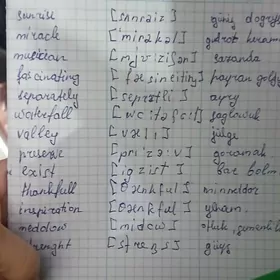 sunrise [sʌnraiz] güneş dogyş
mirack [mirəkəl] gudrat keram
musician [mjuːziʃən] sazanda
fascinating [fæsineitiŋ] haýran
separately [seprətli] aýry
waterfall [wɔːtəfɔːl] şaglawuk
valley [væli] jülge
preserve [prizəːv] goramak
exist [igzist] bar bolm
thankfull [θæŋkful] minnetdar
inspiration [θæŋkful] ylham
meddow [midow]
strenght [streŋs] güýç